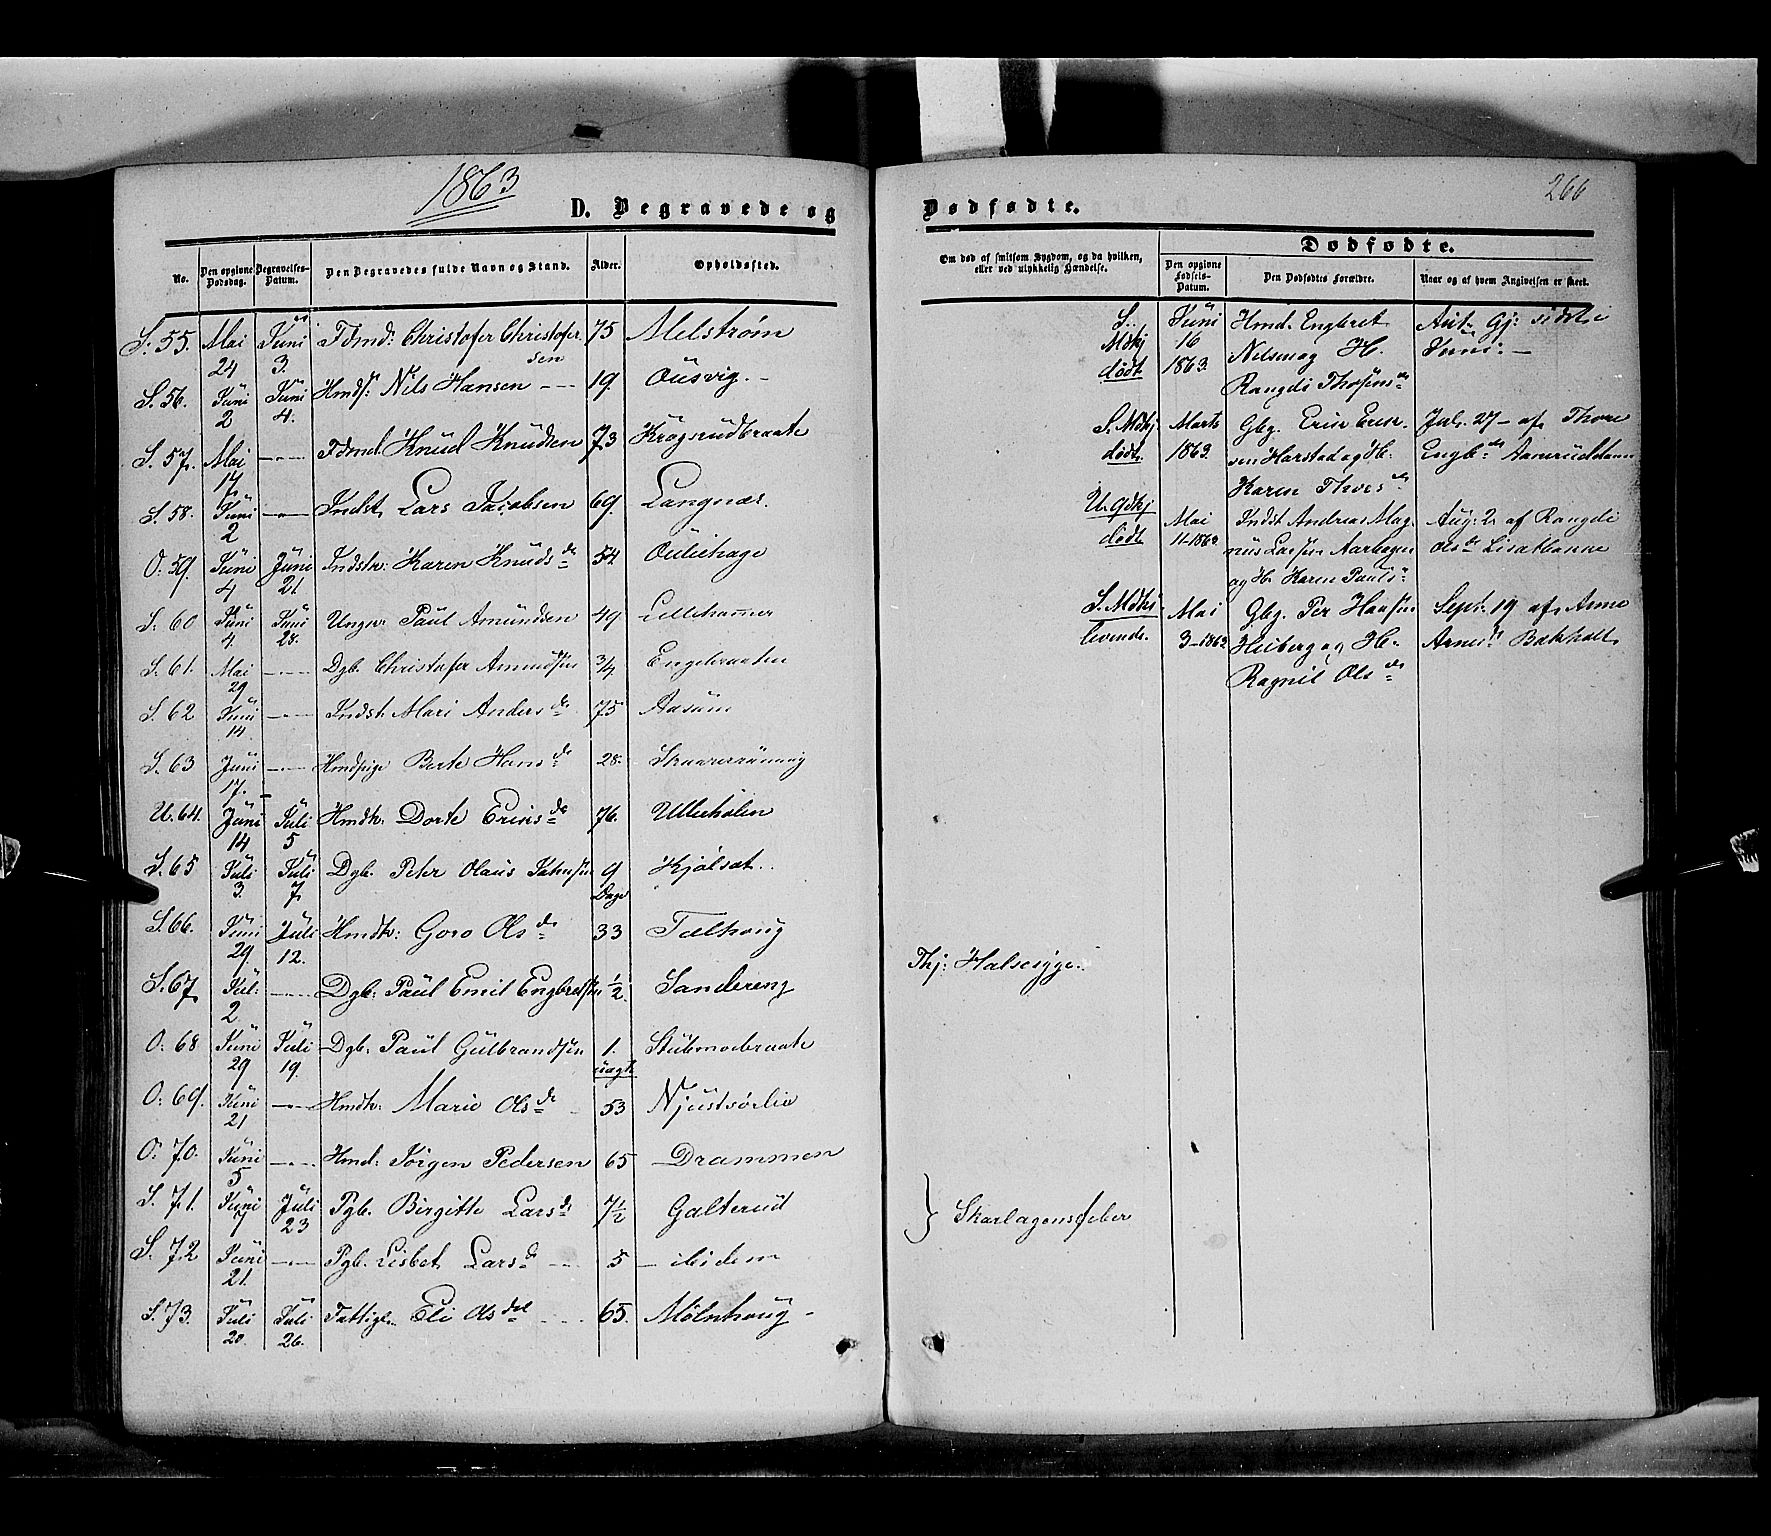 1863
266
D. Begravede og Dødfødte.
No. Den opgivne Dødsdag. Begravelses-Datum. Den Begravedes fulde Navn og Stand. Alder. Opholdssted.
Om død af smitsom Sygdom, og da hvilken, eller ved ulykkelig Hændelse.
Dødfødte.
Den opgivne Fødsels-Datum. Den Dødfødtes Forældre. Naar og af hvem Angivelsen er skeet.
S. 55. Mai 24 Juni 3. Fdmd: Christofer Christofersen 75 Melstrøm
S. 56. Juni 2 Juni 4. Nils Hansen --- 19. Ousvig. -
S. 57. Mai 17 --- Fdmd. Knud Knudsen 73 Krogsrudbraate
S. 58. Juni 2 --- Indst. Lars Jacobsen 69. Langnæs.
O. 59. Juni 4 Juni 21 Indstk: Karen Knudsd. 54. Ouliehage
S. 60 Juni 4. Juni 28. Ungk. Paul Amundsen 49 Lillehammer
S. 61. Mai 29 --- Dgb. Christofer Amundsen 3/4 Engebraaten
S. 62 Juni 14. --- Indst. Mari Andersd. 75 Aasum
S. 63 Juni 17. --- Hmdpige Berte Hansd. 28.
U. 64. Juni 14 Juli 5 Hmdk: Dorte Ericsd. 76. Ullerholen
S. 65 Juli 3. Juli 7. Dgb. Peter Olaus Johnsen 9 Dage Kjølsæt.
S. 66. Juni 29. Juli 12. Hmdk: Goro Olsd. 33 Toelhoug
S. 67 Jul: 2. --- Dgb: Paul Emil Engbretsen 1/2. Sandereng
Thj: Halsesyge.
O. 68 Juni 29 Juli 19. Dgb. Paul Gulbrandsen 1. Stubmoebraate
O. 69. Juni 21 --- Hmdk: Marie Olsd. 53 Njustsørlie
O. 70. Juni 5 --- Hmd: Jørgen Pedersen 65 Drammen
S. 71. Juni 7 Juli 23 Pgb. Birgitte Larsd. 7 1/2 Galterud
} Skarlagensfeber
S. 72 Juni 21. --- Pgb. Lisbet Larsd. --- 5 - ibidem
S. 73. Juli 20. Juli 26. Fattigl. Eli Olsdat --- 65. Mølnhoug -
S. Mdkj dødt Juni 16 1863. Hmd. Engbret Nilsen og H. Rangdi Thosensd. Ant. Gj: sidst i Juni: -
S. Mdkj dødt. Marts 1863. Gbg. Eric Ericsen Harstad og H. Karen Thoresd. Jul. 27 - af Thore Engb.
U. Gdkj dødt Mai 11-1863 Indst Andreas Magnus Larsen Aarhagen og H. Karen Paulsd. Aug. 2. af Rangdi Olsd.
S. Mdkj levende. Mai 3-1863 Gbg. Per Hansen Heiberg og H. Ragnil Olsd. Sept. 19 af Arne Arnes. Bakholt